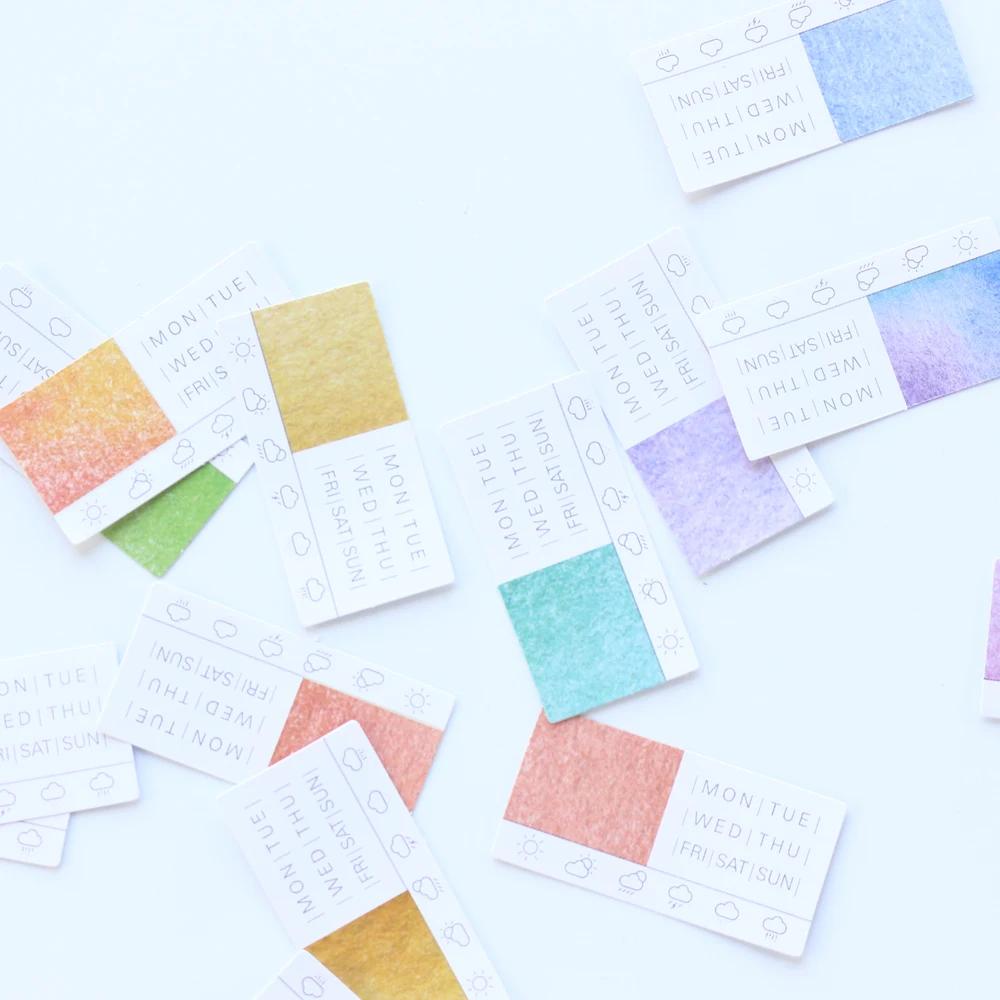 |FRI|SAT|SUN|
|WED|THU|
|MON|TUE|
|MON|TUE|
|WED|THU|
|FRI|SAT|SUN|
|FRI|SAT|SUN|
|WED|THU|
|MON|TUE|
|MON|TUE|
|WED
|FRI|S
SAT|SUN|
|MON|TUE|
|WED|THU|
|FRI|SAT|SUN|
|MON|TUE|
|WED|THU|
|FRI|SAT|SUN|
|FRI|SAT|SUN|
|WED|THU|
|MON|TUE|
ON|TUE|
ED|THU|
RI|SAT|SUN|
|MON|TUE|
|WED|THU|
|FRI|SAT|SUN|
|MON|TUE|
|WED|THU|
|FRI|SAT|SUN|